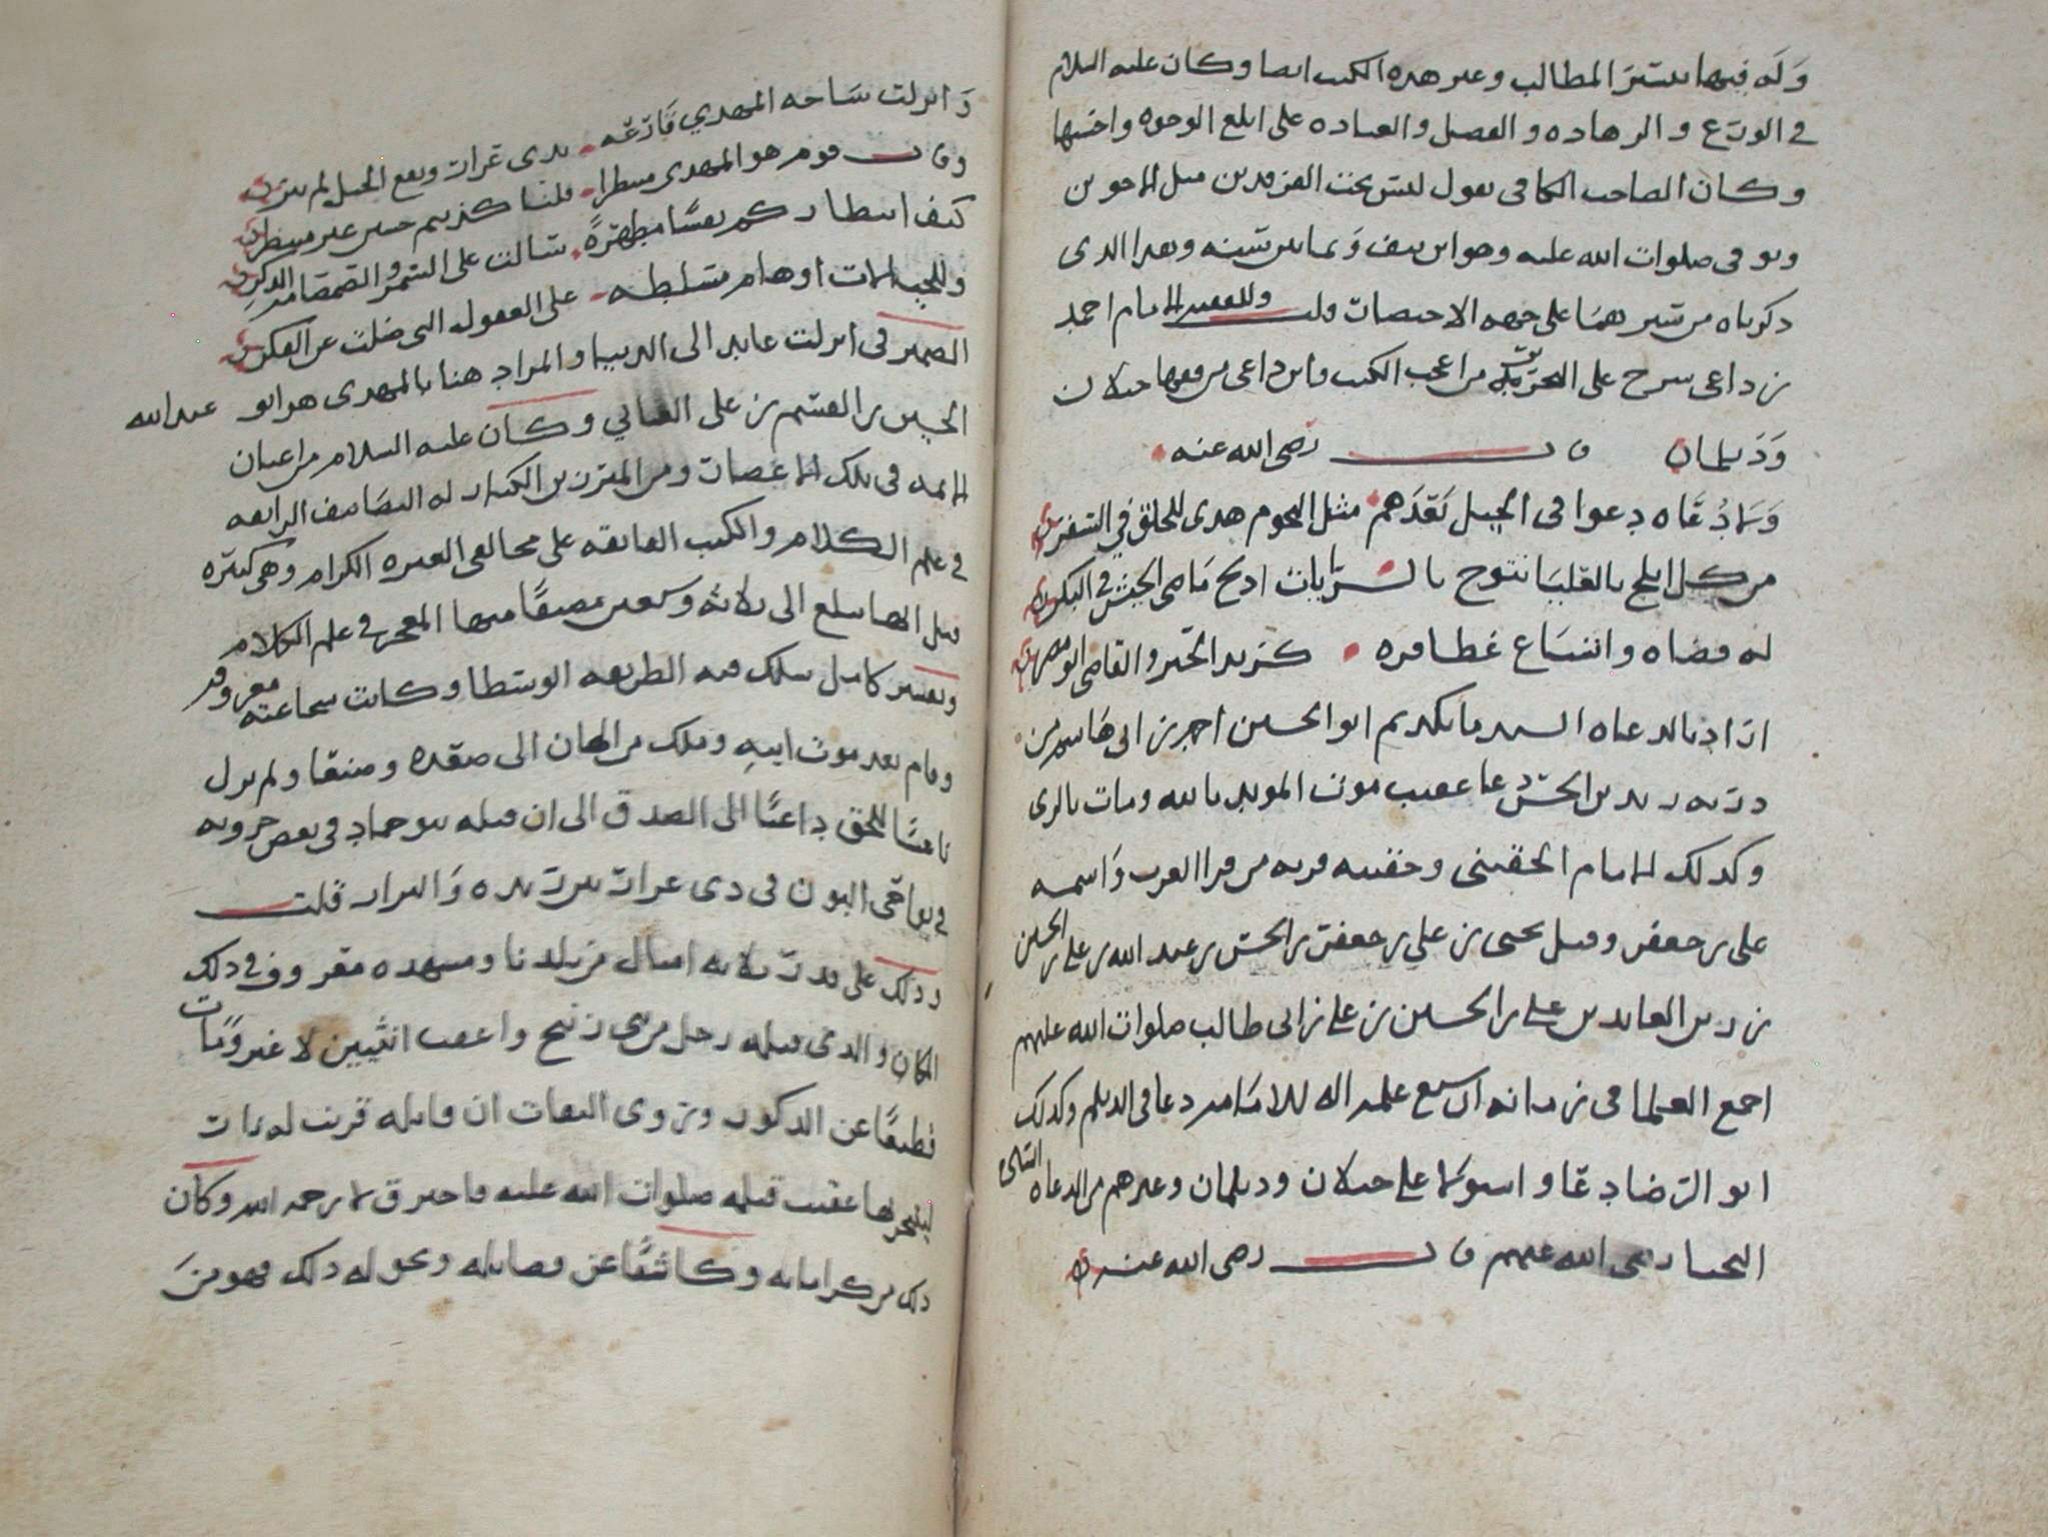 وله فيها تيسير المطالب وغير هذه الكتب ايضا وكان عليه السلام
في الورع والزهاده والفضل والعباده على ابلغ الوجوه واحسنها
وكان الصاحب الكافي يقول ليس تحت الفرقدين مثل الاخوين
وتوفي صلوات الله عليه وهو ابن نيف وثمانين سنه وهذا الذي
ذكرناه من سيرهما على جهه الاختصار قلت وللفقيه الامام احمد
بن داعي شرح على التحرير من اعجب الكتب وابن داعي من فقها جيلان
وديلمان قال رضي الله عنه
وساده دعوا في الجيل بعدهم مثل النجوم هدى للخلق في السفر
من كل ابلج بالعليا متوج بالرايات ماضي الجيش في البكر
له قضاه واتساع غطارفه كزيد الحبر والقاضي ابو مضر
اراد بالدعاه السيد مانكديم ابو الحسين احمد بن ابي هاشم من
ذريه زيد بن الحسن دعا عقيب موت المويد بالله ومات بالري
وكذلك الامام الحقيني وحقينه قريه من قرا العرب واسمه
علي بن جعفر وقيل يحيى بن علي بن جعفر بن الحسن بن عبد الله بن علي بن الحسين
بن زين العابدين علي بن الحسين بن علي بن ابي طالب صلوات الله عليهم
اجمع العلما في زمانه ان سبع علمه اله للامامه دعا في الديلم وكذلك
ابو الرضا دعا واستولى على جيلان وديلمان وغيرهم من الدعاه
النجبا رضي الله عنهم قال رضي الله عنه
وانزلت ساحه المهدي قارعه بذي عرار ونقع الخيل لم يثر
وقال قوم هو المهدي منتظرا قلنا كذبتم حسين غير منتظر
كيف انتظاركم نفسا مطهرة سالت على السمر والصمصامه الذكر
وللجهالات اوهام مسلطه على العقول التي ضلت عن الفكر
الضمير في انزلت عايد الى الدنيا والمراد هنا بالمهدي هو ابو عبد الله
الحسين بن القسم بن علي العياني وكان عليه السلام من اعيان
الايمه في تلك الاعصار ومن المبرزين الكبار له التصانيف الرايعه
في علم الكلام والكتب الفايقه على مخالفي العتره الكرام وهي كثيره
قيل انها تبلغ الى ثلاثه وسبعين مصنفا منها المعجز في علم الكلام
وتفسير كامل سلك فيه الطريقه الوسطا وكانت شجاعته معروفه
وقام بعد موت ابيه وملك من الهان الى صعده وصنعا ولم يزل
ناعشا للحق داعيا الى الصدق الى ان قتله بنو حماد في بعض حروبه
في نواحي البون في ذي عرار بين ريده والبرار قلت
وذلك على قدر ثلاثه اميال من بلدنا ومشهده معروف في ذلك
المكان والذي قتله رجل من بني زنيح واعقب انثيين لا غير ومات
قطيعا عن الذكور وتروي الثقات ان قاتله قربت له نار
ليتبخر بها عقيب قتله صلوات الله عليه فاحترق لا رحمه الله وكان
ذلك من كراماته وكاشفا عن فضايله ونحو له ذلك فهو من